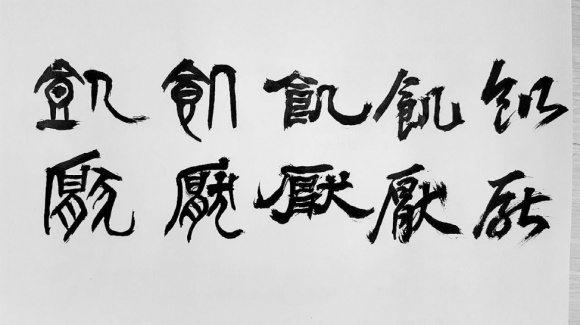 飢飢飢飢飢
厭厭厭厭厭